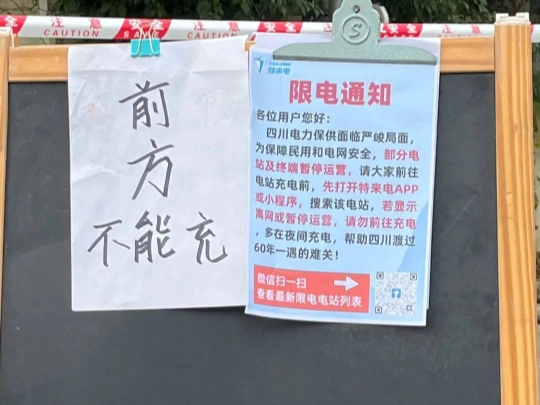 注意 安全 注意 安全 注意 安全
CAUTION CAUTION CAUTION
前
方
不能充
特来电
限电通知
各位用户您好：
四川电力保供面临严峻局面，
为保障民用和电网安全，部分电
站及终端暂停运营，请大家前往
电站充电前，先打开特来电APP
或小程序，搜索该电站，若显示
离网或暂停运营，请勿前往充电
，多在夜间充电，帮助四川渡过
60年一遇的难关！
微信扫一扫
查看最新限电电站列表